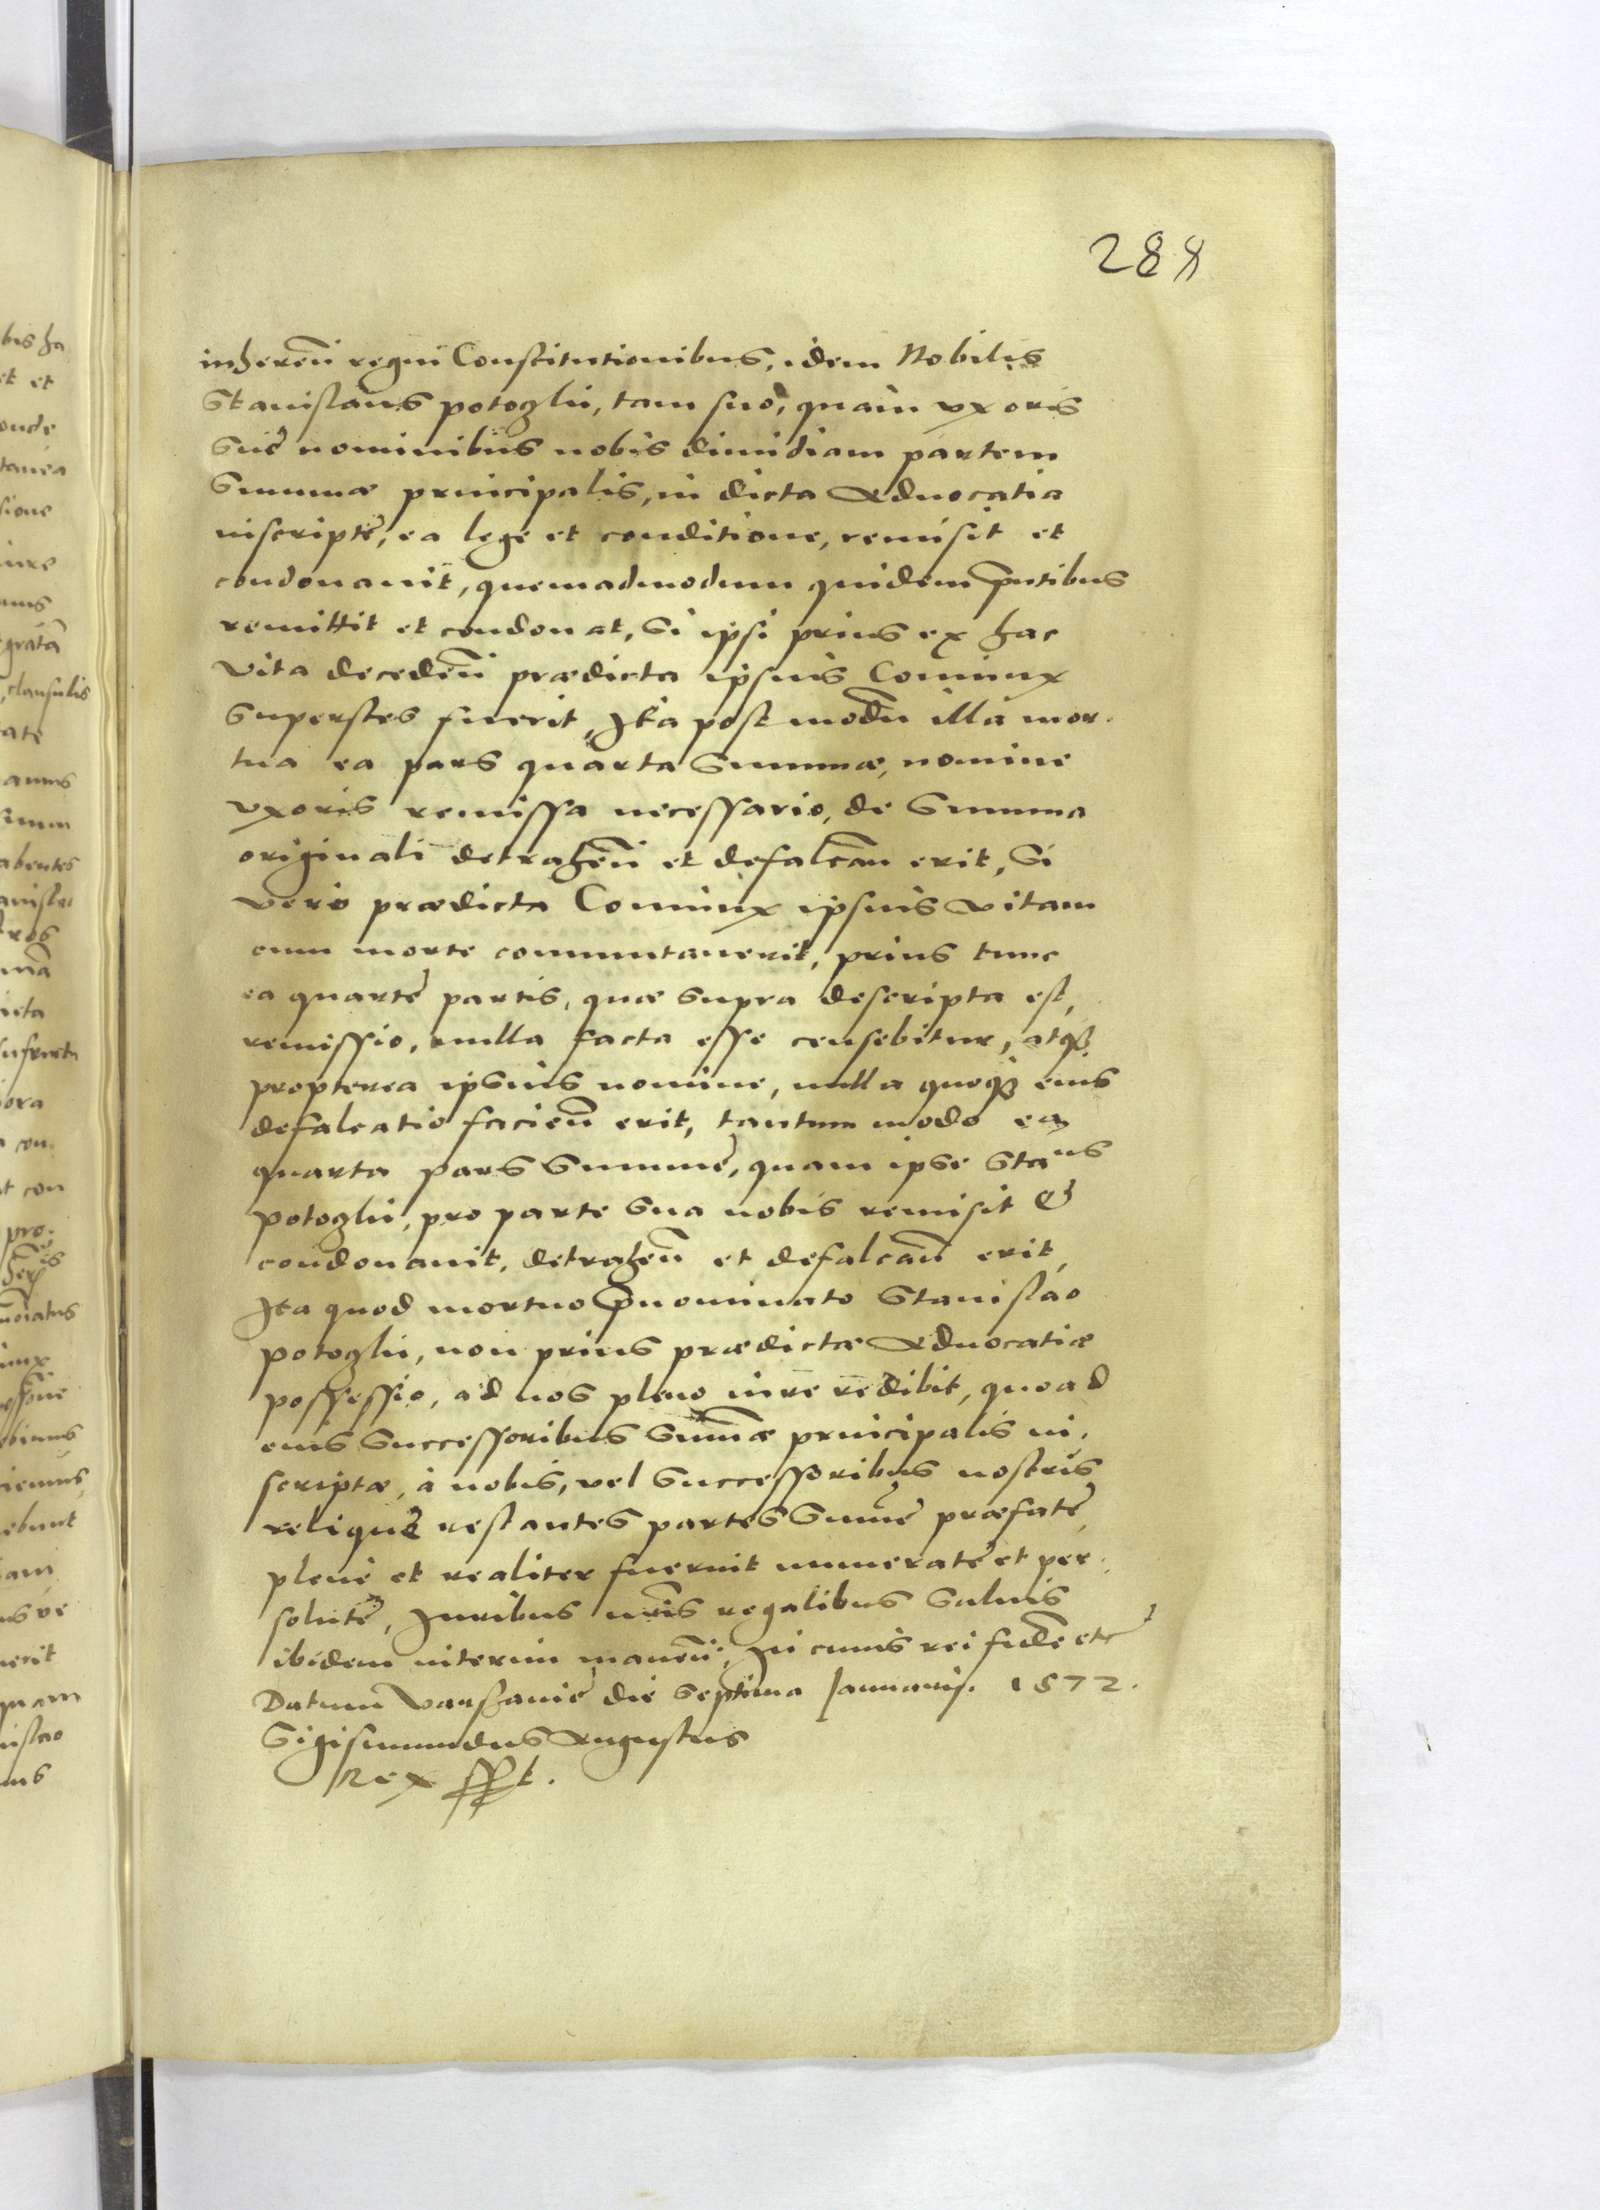 288
inhereñ regni Constitutionibus, idem Nobilis
Stanislaus potoglii, tam suo, quam uxoris
suę nominibus nobis dimidiam partem
Summæ principalis, in dicta Advocatia
inscriptę, ea lege et conditione, remisit et
condonavit, quemadmodum quidem pñtibus
remittit et condonat, Si ipsi prius ex hac
vita decedeñ prædicta ipsius Coniunx
superstes fuerit, Ita post modũ illa mor-
tua ea pars quarta Summæ, nomine
uxoris remissa necessario, de Summa
originali detraheñ et defalcañ erit, Si
vero prædicta Coniunx ipsius vitam
cum morte commutaverit, prius tunc
ea quartę partis, quæ supra descripta est,
remissio, nulla facta esse censebitur, atqꝫ
propterea ipsius nomine, nulla quoqꝫ eius
defalcatio facieñ erit, tantum modo ea
quarta pars Summę, quam ipse Staus
potoglii, pro parte sua nobis remisit &
condonavit, detraheñ et defalcañ erit,
Ita quod mortuo p̃nominato Stanislao
potoglii, non prius prædictæ Advocatiæ
possessio, ad nos pleno iure redibit, quoad
eius Successoribus Sum̃æ principalis in-
scriptæ, à nobis, vel Successoribus nostris
reliquę restantes partes Sum̃ę præfatę,
plenè et realiter fuerint numeratę et per-
solutę, Iuribus nr̃is regalibus salvis
ibidem interim maneñ, In cuius rei fidẽ etc
Datum Varsavię die septima Januarij. 1572.
Sigismundus Augustus
Rex sst.